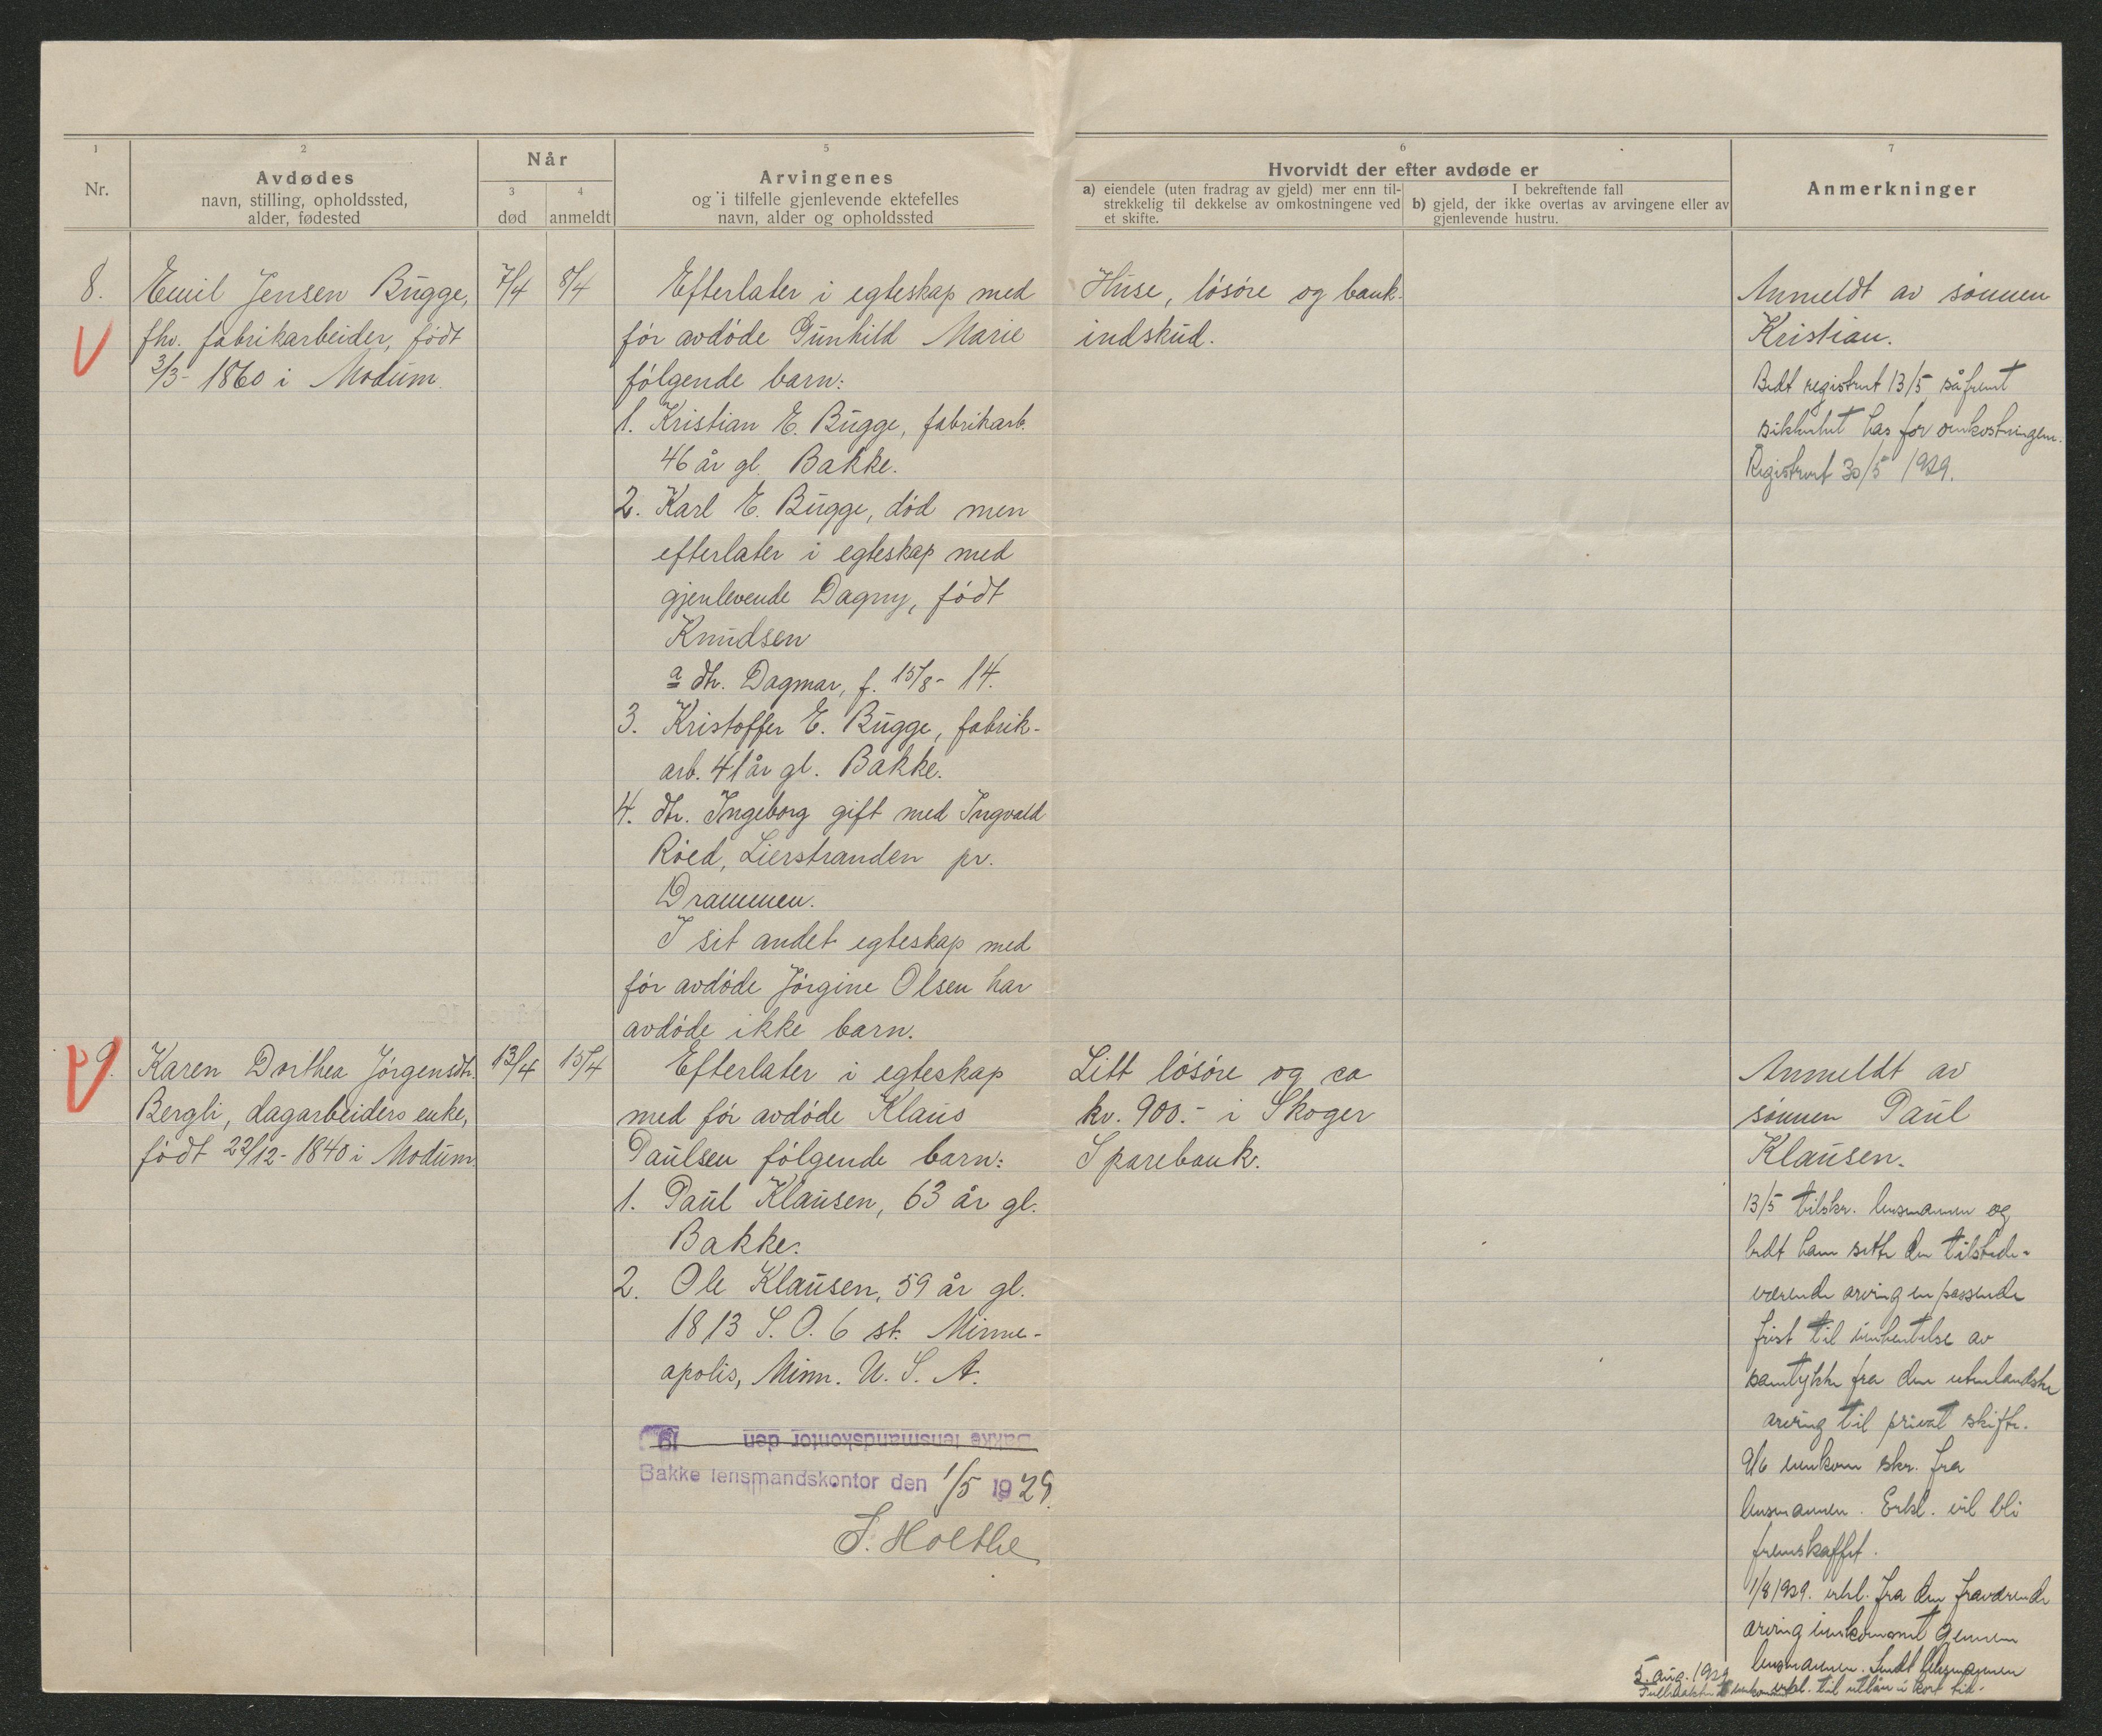 1
Nr.
2
Avdødes
navn, stilling, opholdssted,
alder, fødested
Når
3
død
4
anmeldt
5
Arvingenes
og i tilfelle gjenlevende ektefelles
navn, alder og opholdssted
6
Hvorvidt der efter avdøde er
a) eiendele (uten fradrag av gjeld) mer enn til-
strekkelig til dekkelse av omkostningene ved
et skifte.
I bekreftende fall
b) gjeld, der ikke overtas av arvingene eller av
gjenlevende hustru.
7
Anmerkninger
8.
Emil Jensen Bugge,
fhv. fabrikarbeider, født
3/3- 1860 i Modum.
7/4
8/4
Efterlater i egteskap med
før avdøde Gunhild Marie
følgende barn:
1. Kristian E. Bugge, fabrikarb.
46 år gl. Bakke.
2. Karl E. Bugge, død men
efterlater i egteskap med
gjenlevende Dagny, født
Knudsen
a dtr. Dagmar, f. 15/8- 14.
3. Kristoffer E. Bugge, fabrik-
arb. 41 år gl. Bakke.
4. dtr. Ingeborg gift med Ingvald
Røed, Lierstranden pr.
Drammen.
I sit andet egteskap med
før avdøde Jørgine Olsen har
avdøde ikke barn.
Huse, løsøre og bank-
indskud.
Anmeldt av sønnen
Kristian.
Bedt registrert 13/5 såfremt
sikkerhet has for omkostningene.
Registrert 30/5 1929.
9.
Karen Dorthea Jørgensdtr.
Bergli, dagarbeiders enke,
født 22/12- 1840 i Modum
13/4
15/4
Efterlater i egteskap
med før avdøde Klaus
Paulsen følgende barn:
1. Paul Klausen, 63 år gl.
Bakke.
2. Ole Klausen, 59 år gl.
1813 S. O. 6 st. Minne-
apolis, Minn. U. S. A.
Litt løsøre og ca
kr. 900.- i Skoger
Sparebank.
Anmeldt av
sønnen Paul
Klausen.
13/5 tilskr. lensmannen og
bedt ham sette den tilstede-
værende arving en passende
frist til innhentelse av
samtykke fra den utenlandske
arving til privat skifte.
9/6 innkom skr. fra
lensmannen. Erkl. vil bli
fremskaffet.
1/8 1929. erkl. fra den fraværende
arving innkommet gjennem
lensmannen. Sendt lensmannen
5. aug. 1929
erkl. til utlån i kort tid.
Bakke lensmandskontor den 19
Bakke lensmandskontor den 1/5 1929.
S. Holthe